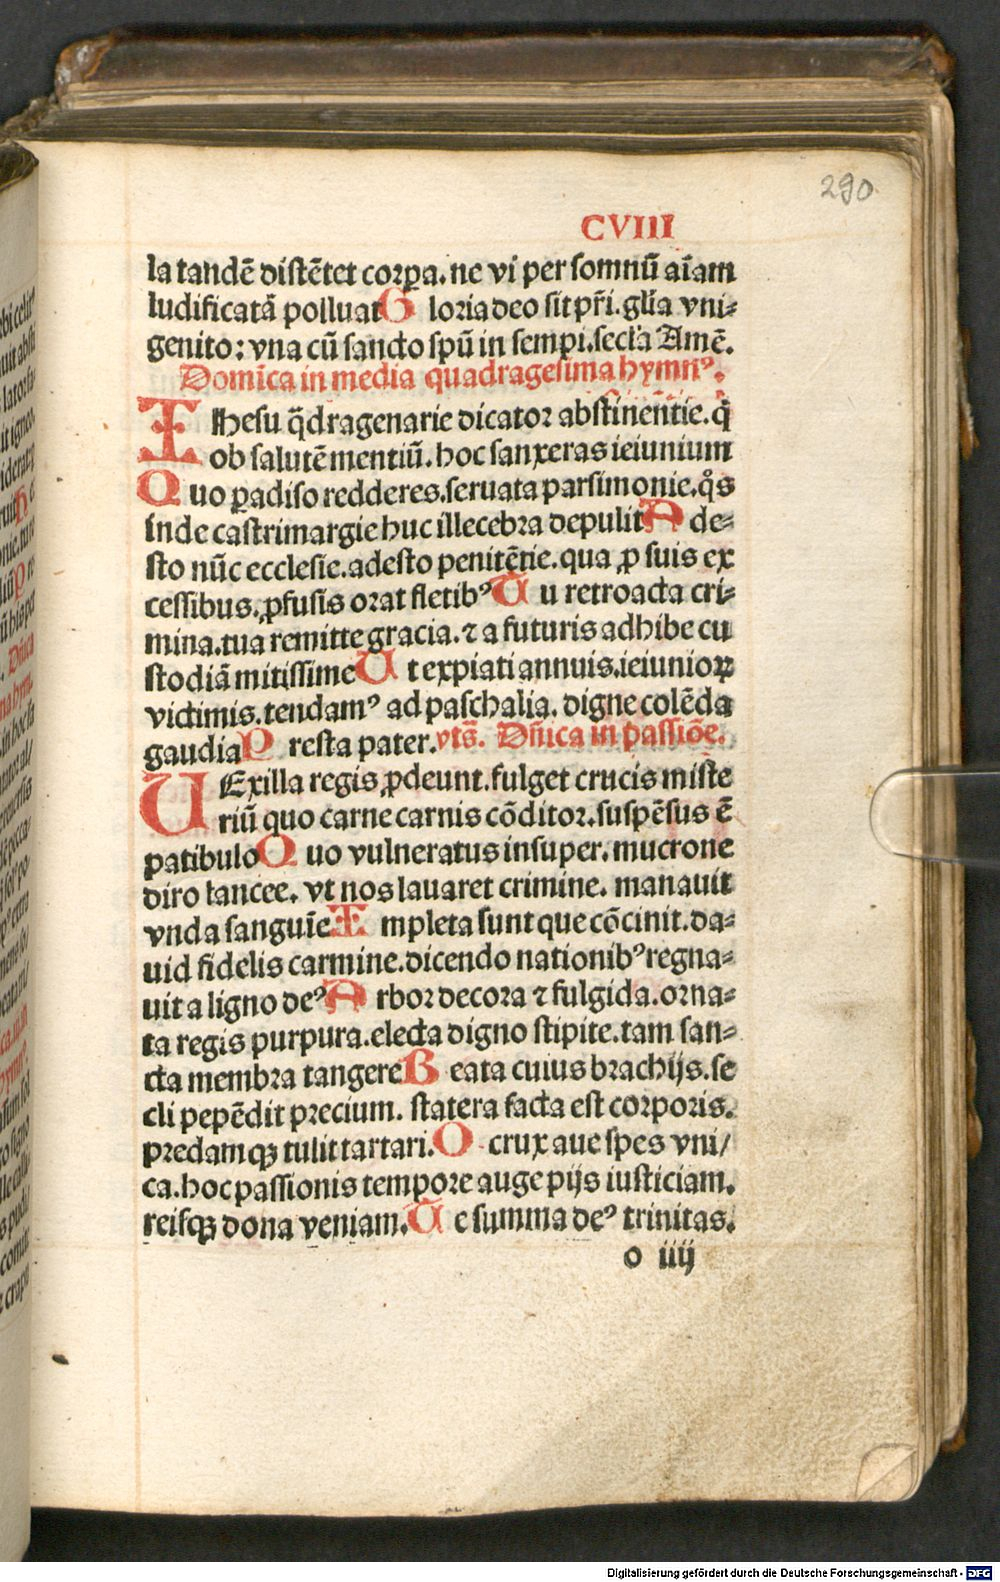 290
CVIII
la tandē distētet corpa. ne vi per somnū aīam
ludificatā polluat G loria deo sit pr̄i. gl̄ia vni⸗
genito: vna cū sancto spū in sempi. secl'a Amē.
Domīca in media quadragesima hymnꝰ.
Ihesu q̄dragenarie dicator abstinentie. q̇
ob salutē mentiū. hoc sanxeras ieiunium
Q uo ꝑadiso redderes. seruata parsimonie. q̊s
inde castrimargie huc illecebra depulit A de⸗
sto nūc ecclesie. adesto penitētie. qua ꝓ suis ex
cessibus. ꝓfusis orat fletibꝰ T u retroacta cri⸗
mina. tua remitte gracia. ⁊ a futuris adhibe cu
stodiā mitissime U t expiati annuis. ieiunioꝝ
victimis. tendamꝰ ad paschalia. digne colēda
gaudia P resta pater. vts̄. Dn̄ica in passiōe.
UExilla regis ꝓdeunt. fulget crucis miste
riū quo carne carnis cōditor. suspēsus ē
patibulo Q uo vulneratus insuper. mucrone
diro lancee. vt nos lauaret crimine. manauit
vnda sanguīe I mpleta sunt que cōcinit. da⸗
uid fidelis carmine. dicendo nationibꝰ regna⸗
uit a ligno deꝰ A rbor decora ⁊ fulgida. orna⸗
ta regis purpura. electa digno stipite. tam san⸗
cta membra tangere B eata cuius brachijs. se
cli pepēdit precium. statera facta est corporis.
predamqꝫ tulit tartari. O crux aue spes vni/
ca. hoc passionis tempore auge pijs iusticiam.
reisqꝫ dona veniam. T e summa deꝰ trinitas.
o iiij
Digitalisierung gefördert durch die Deutsche Forschungsgemeinschaft - DFG